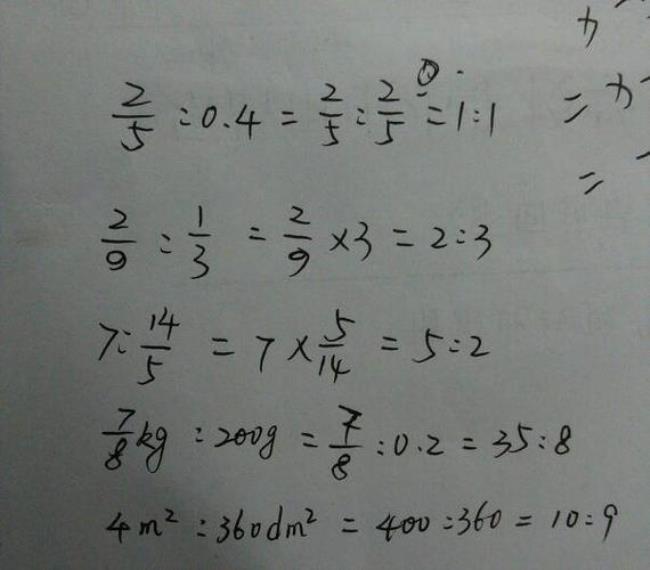 2/5 : 0.4 = 2/5 : 2/5 = 1:1
2/9 : 1/3 = 2/9 × 3 = 2:3
7 : 14/5 = 7 × 5/14 = 5:2
7/8 kg : 200g = 7/8 : 0.2 = 35:8
4m² : 360dm² = 400:360 = 10:9